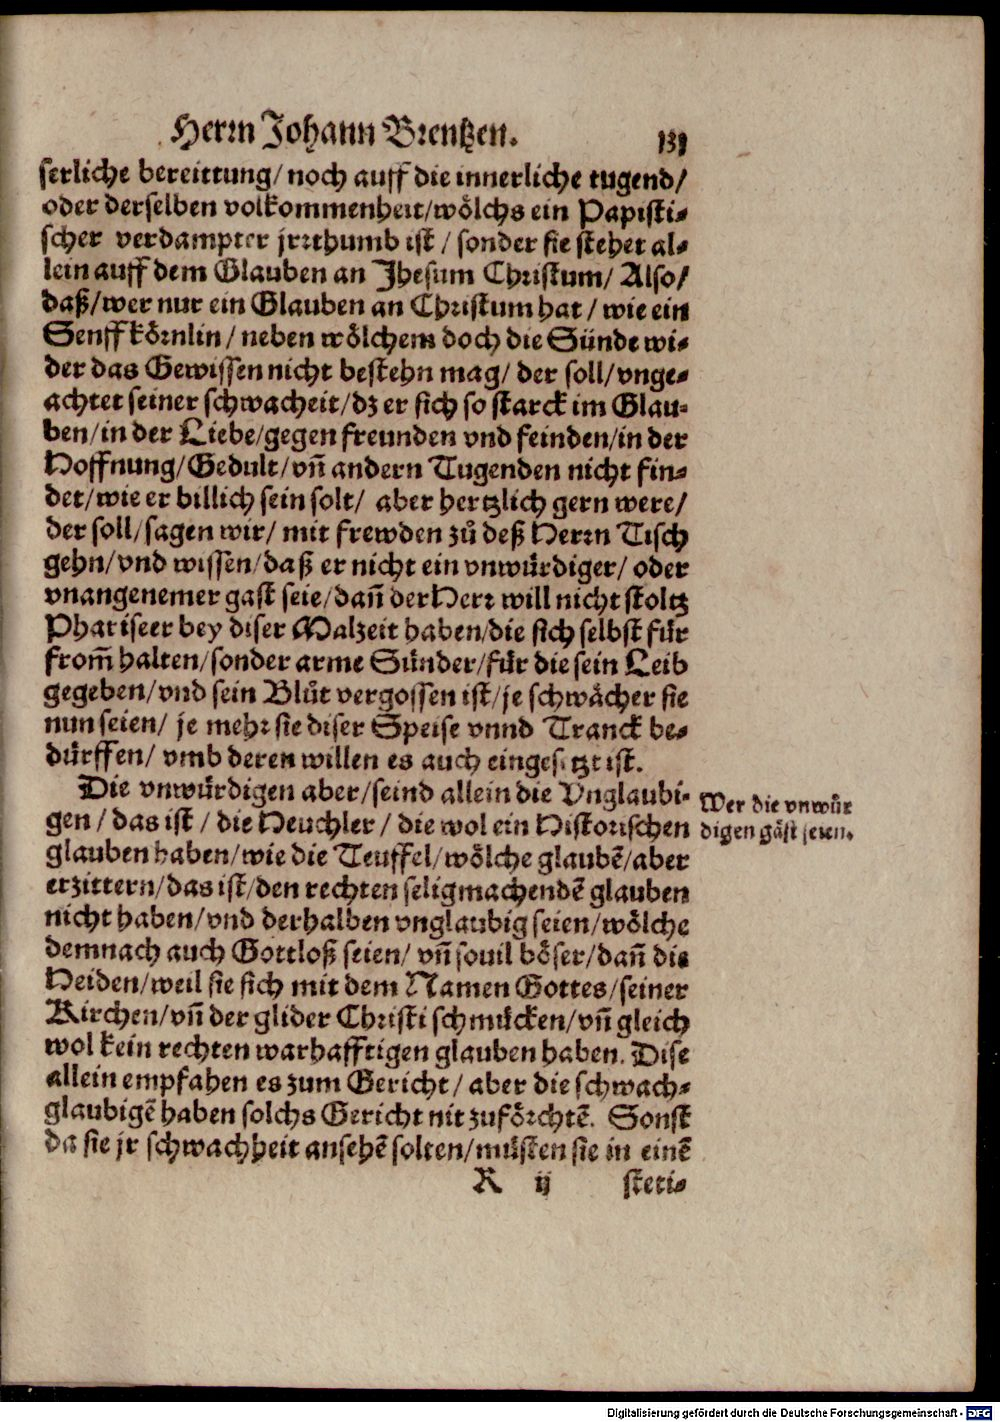 Herrn Johann Brentzen. 131
serliche bereittung/ noch auff die innerliche tugend/
oder derselben volkommenheit/wölchs ein Papisti-
scher verdampter jrrthumb ist / sonder sie stehet al-
lein auff dem Glauben an Jhesum Christum/ Also/
daß/wer nur ein Glauben an Christum hat / wie ein
Senffkörnlin / neben wölchem doch die Sünde wi-
der das Gewissen nicht bestehn mag/ der soll/vnge-
achtet seiner schwacheit/dz er sich so starck im Glau-
ben/in der Liebe/gegen freunden vnd feinden/in der
Hoffnung/Gedult/vñ andern Tugenden nicht fin-
det/wie er billich sein solt/ aber hertzlich gern were/
der soll/sagen wir/ mit frewden zů deß Herrn Tisch
gehn/vnd wissen/daß er nicht ein vnwürdiger/ oder
vnangenemer gast seie/dañ der Herr will nicht stoltz
Phariseer bey diser Malzeit haben/die sich selbst für
from̃ halten/sonder arme Sünder/für die sein Leib
gegeben/vnd sein Blůt vergossen ist/je schwächer sie
nun seien/ je mehr sie diser Speise vnnd Tranck be-
dürffen/ vmb deren willen es auch eingesetzt ist.
Die vnwürdigen aber/seind allein die Vnglaubi-
gen / das ist / die Heuchler / die wol ein Historischen
glauben haben/wie die Teuffel/wölche glaubẽ/aber
erzittern/das ist/den rechten seligmachendẽ glauben
nicht haben/vnd derhalben vnglaubig seien/wölche
demnach auch Gottloß seien/ vñ souil böser/dañ die
Heiden/weil sie sich mit dem Namen Gottes/seiner
Kirchen/vñ der glider Christi schmücken/vñ gleich
wol kein rechten warhafftigen glauben haben. Dise
allein empfahen es zum Gericht/ aber die schwach-
glaubigẽ haben solchs Gericht nit zuförchtẽ. Sonst
da sie jr schwachheit ansehẽ solten/müsten sie in einẽ
R ij steti-
Wer die vnwür
digen gäst seien.